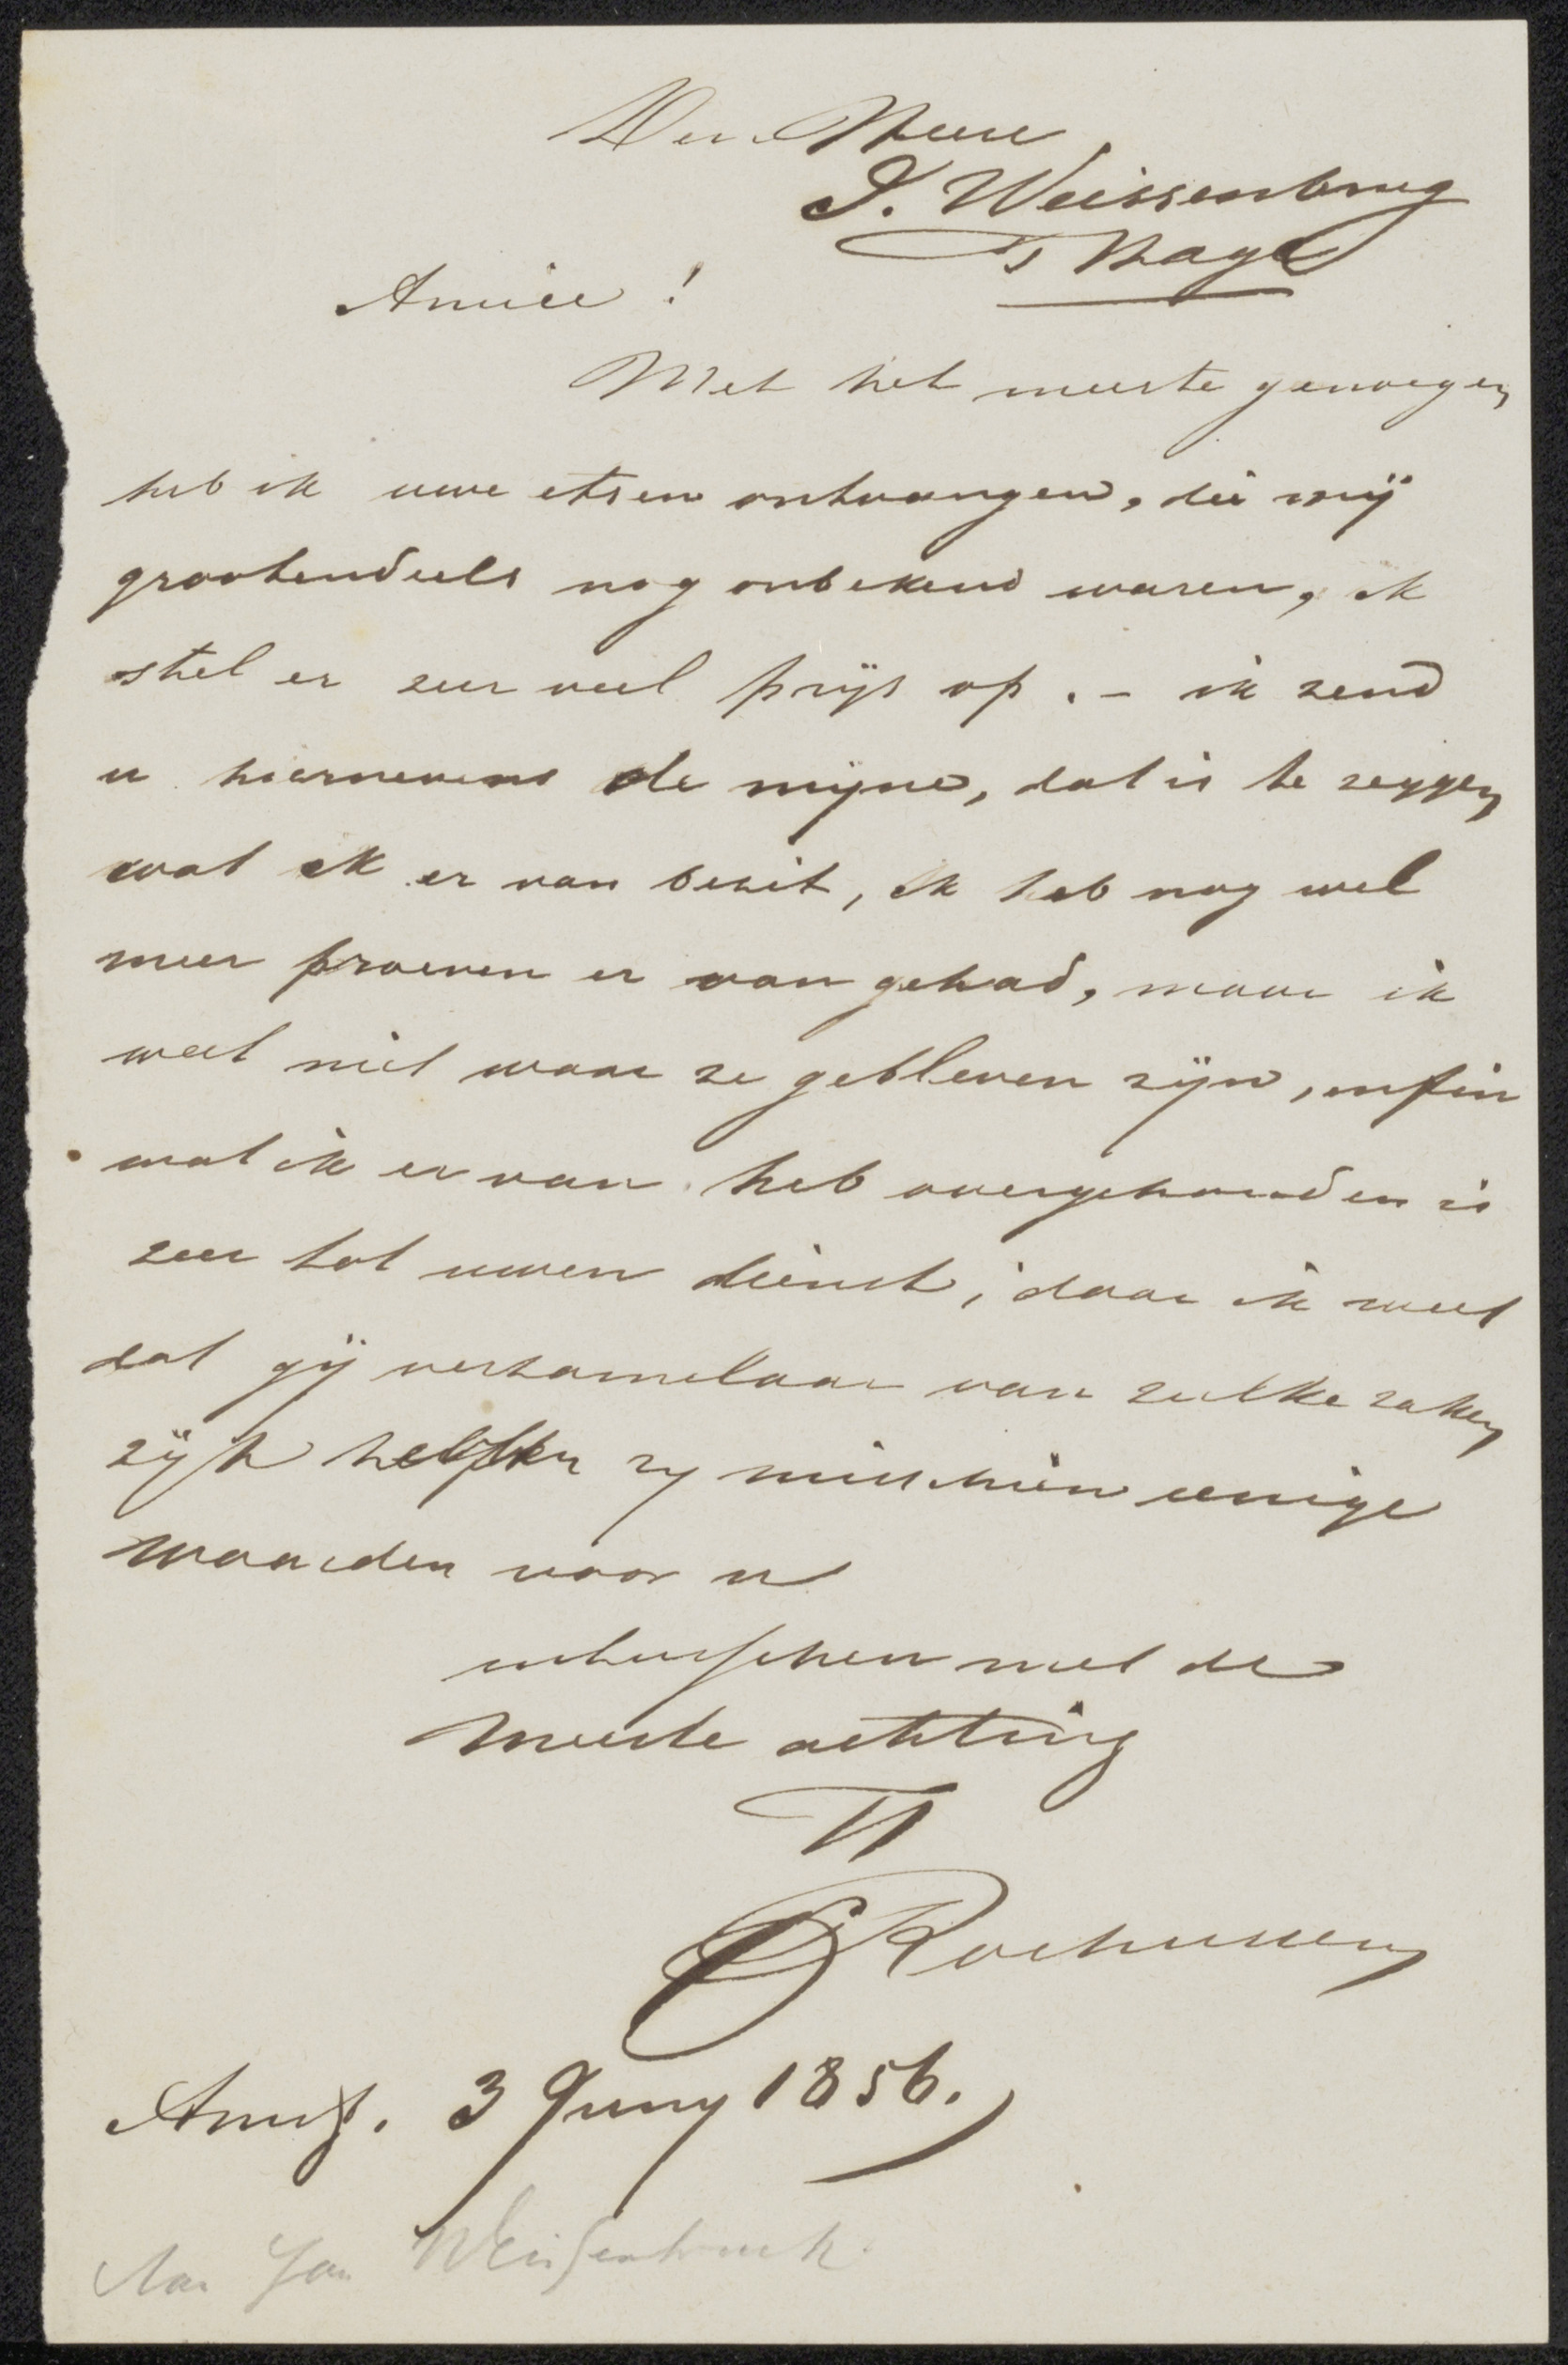 Den Heere
J. Weissenbrug
's Hage
Amice !
Met het meeste genoegen
heb ik uwe etsen ontvangen, die mij
grootendeels nog onbekend waren, ik
stel er zeer veel prijs op. - ik zend
u hiernevens de mijne, dat is te zeggen
wat ik er van bezit, ik heb nog wel
meer proeven er van gehad, maar ik
weet niet waar ze gebleven zijn, enfin
wat ik er van heb overgehouden is
zeer tot uwen dienst, daar ik weet
dat gij verzamelaar van zulke zaken
zijt hebben zy misschien eenige
waarden voor u
intusschen met de
meeste achting
TT
C Rochussen
Amst. 3 Juny 1856.
Aan Jan Weissenbruch